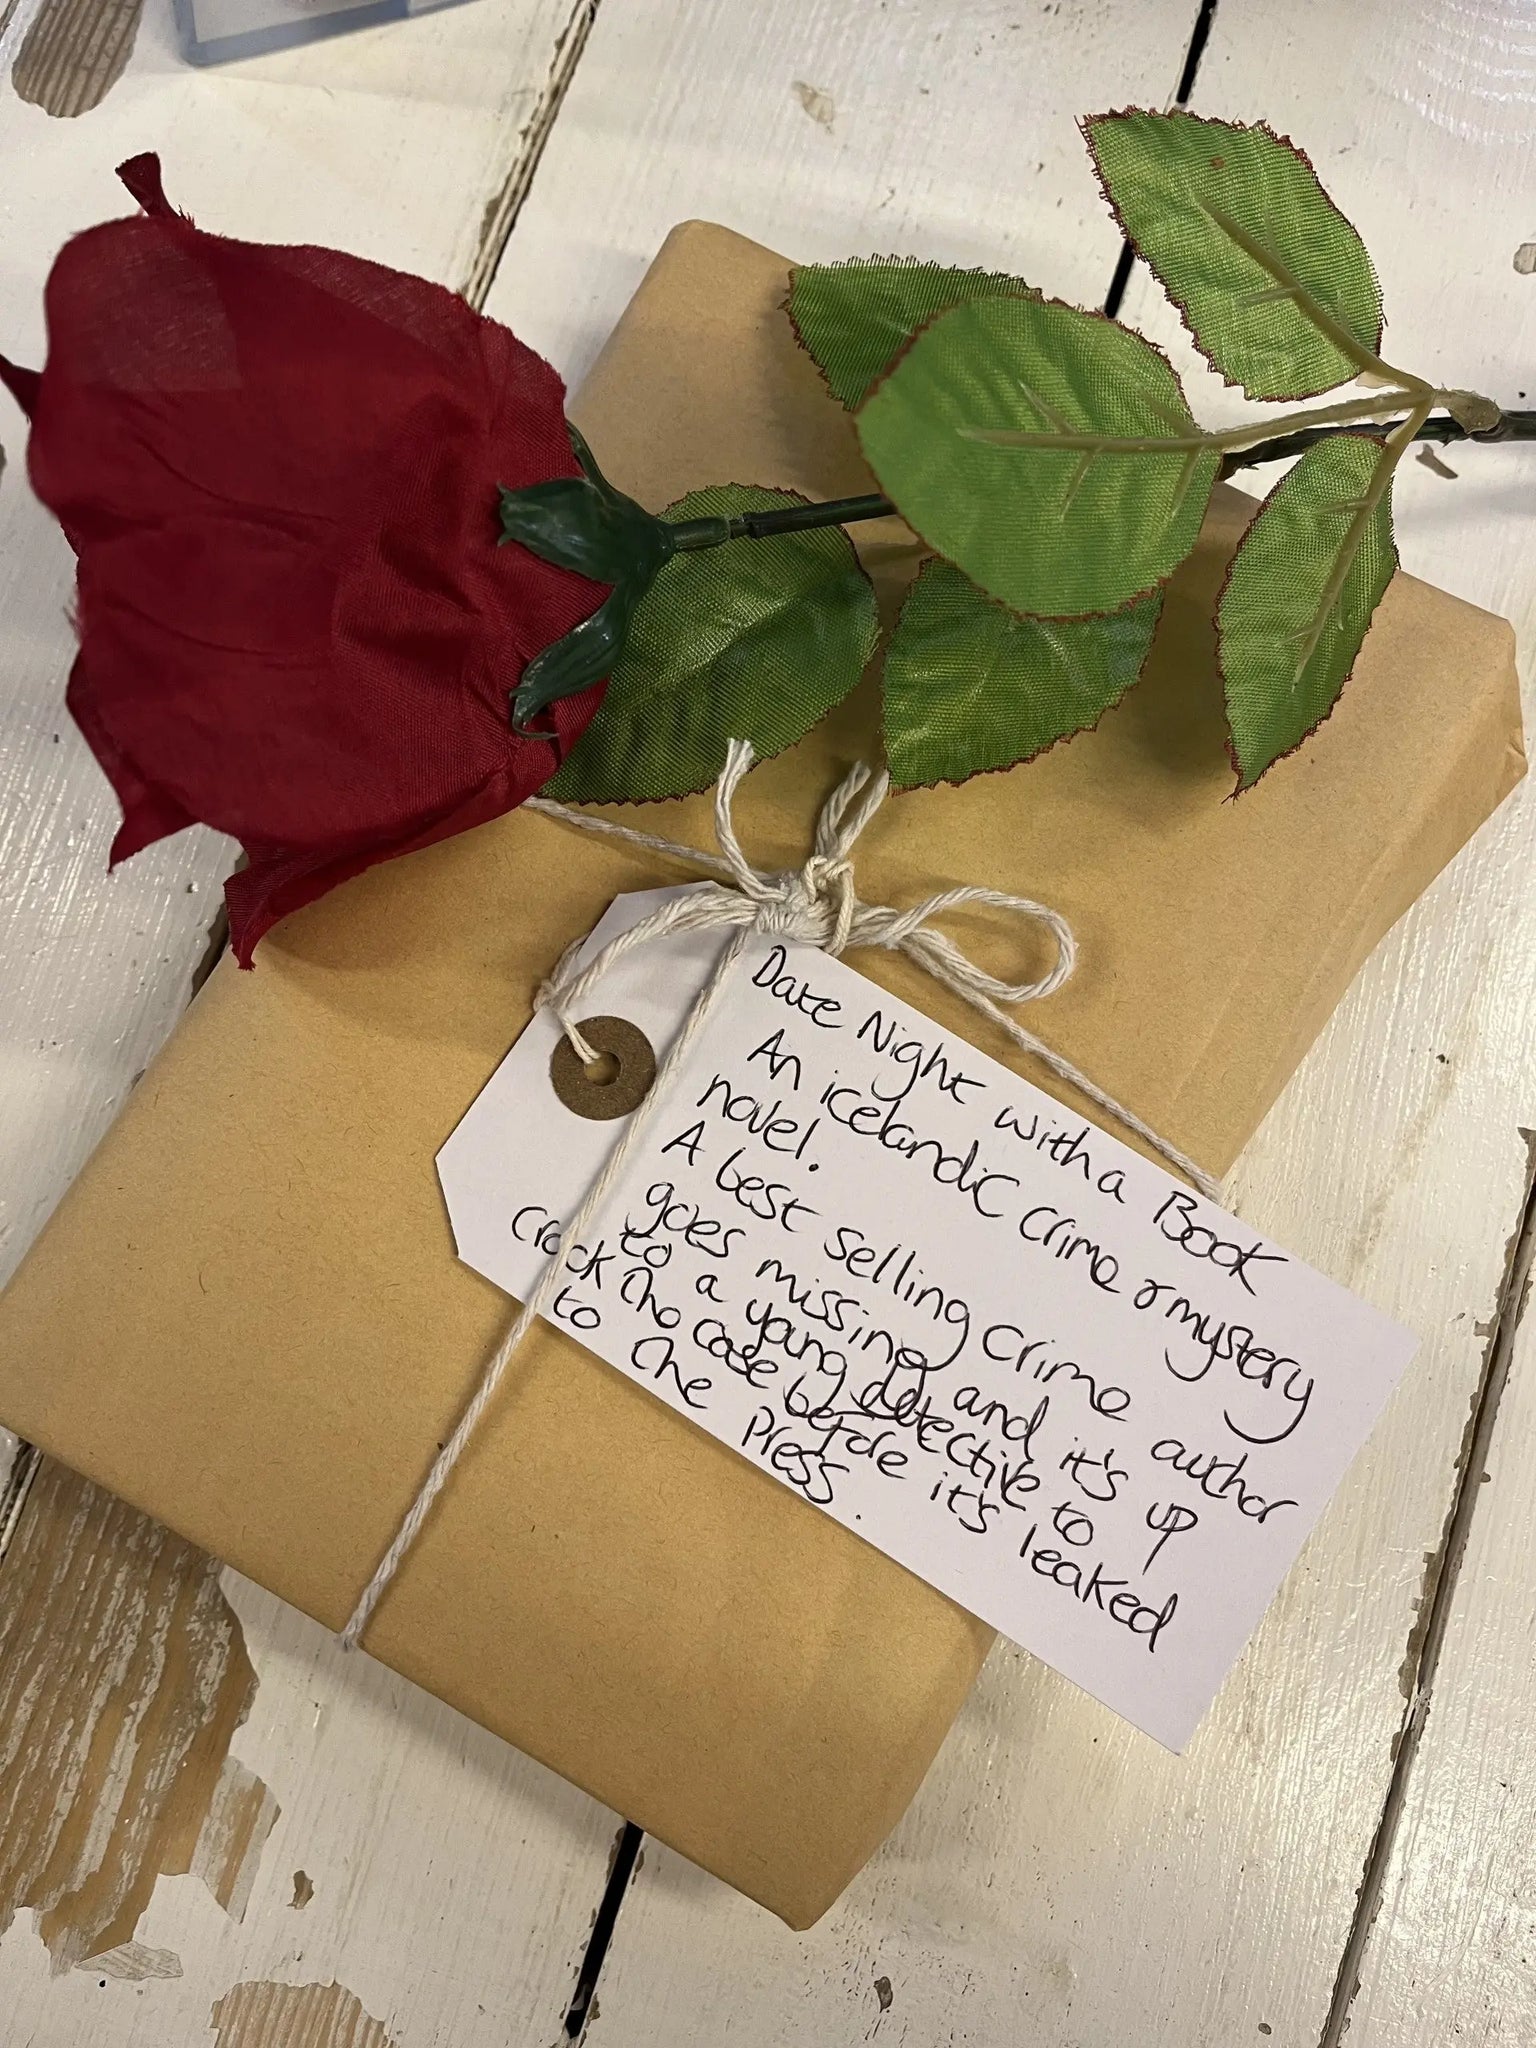 Date Night with a Book
An icelandic crime & mystery
novel.
A best selling crime author
goes missing and it's up
to a young detective to
crack the case before it's leaked
to the press.